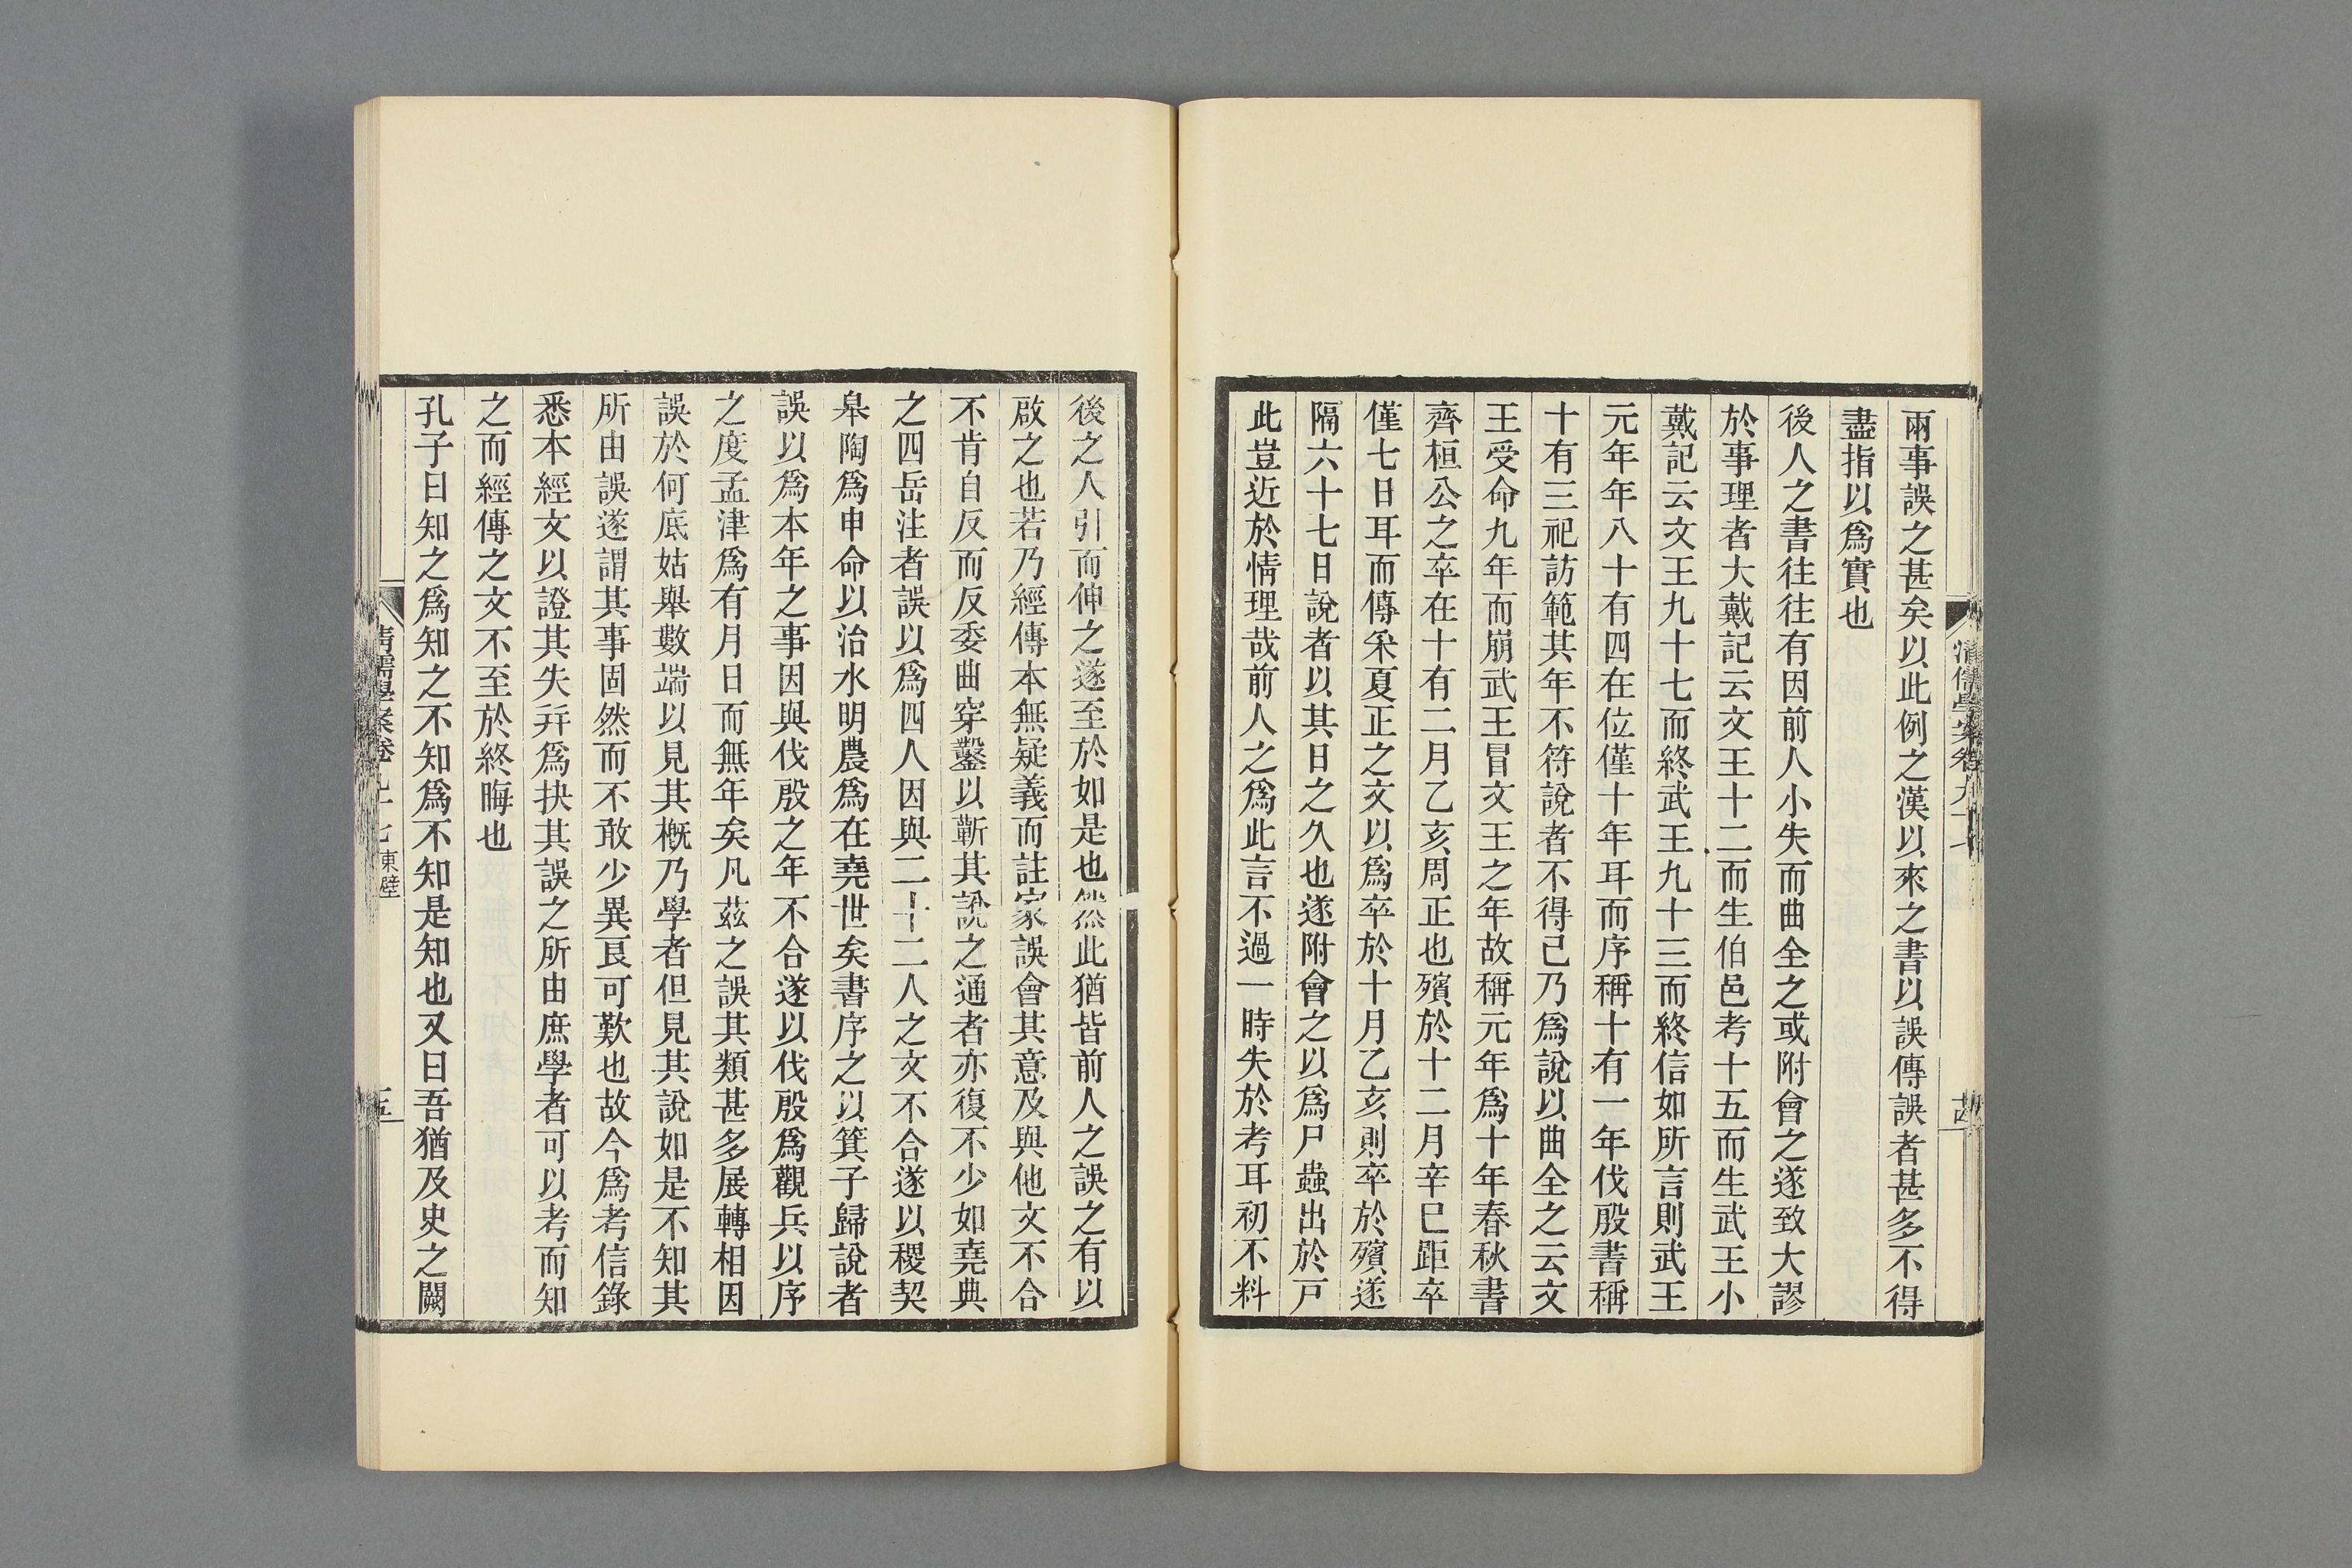 清儒學案卷九十七
兩事誤之甚矣以此例之漢以來之書以誤傳誤者甚多不得
盡指以爲實也
後人之書往往有因前人小失而曲全之或附會之遂致大謬
於事理者大戴記云文王十二而生伯邑考十五而生武王小
戴記云文王九十七而終武王九十三而終信如所言則武王
元年年八十有四在位僅十年耳而序稱十有一年伐殷書稱
十有三祀訪範其年不符說者不得已乃爲說以曲全之云文
王受命九年而崩武王冒文王之年故稱元年爲十年春秋書
齊桓公之卒在十有二月乙亥周正也殯於十二月辛巳距卒
僅七日耳而傳采夏正之文以爲卒於十月乙亥則卒於殯遂
隔六十七日說者以其日之久也遂附會之以爲尸蟲出於戸
此豈近於情理哉前人之爲此言不過一時失於考耳初不料
後之人引而伸之遂至於如是也然此猶皆前人之誤之有以
啟之也若乃經傳本無疑義而註家誤會其意及與他文不合
不肯自反而反委曲穿鑿以蘄其說之通者亦復不少如堯典
之四岳注者誤以爲四人因與二十二人之文不合遂以稷契
皋陶爲申命以治水明農爲在堯世矣書序之以箕子歸說者
誤以爲本年之事因與伐殷之年不合遂以伐殷爲觀兵以序
之度孟津爲有月日而無年矣凡茲之誤其類甚多展轉相因
誤於何底姑舉數端以見其槪乃學者但見其說如是不知其
所由誤遂謂其事固然而不敢少異良可歎也故今爲考信錄
悉本經文以證其失并爲抉其誤之所由庶學者可以考而知
之而經傳之文不至於終晦也
孔子曰知之爲知之不知爲不知是知也又曰吾猶及史之闕
清儒學案卷九十七 東壁